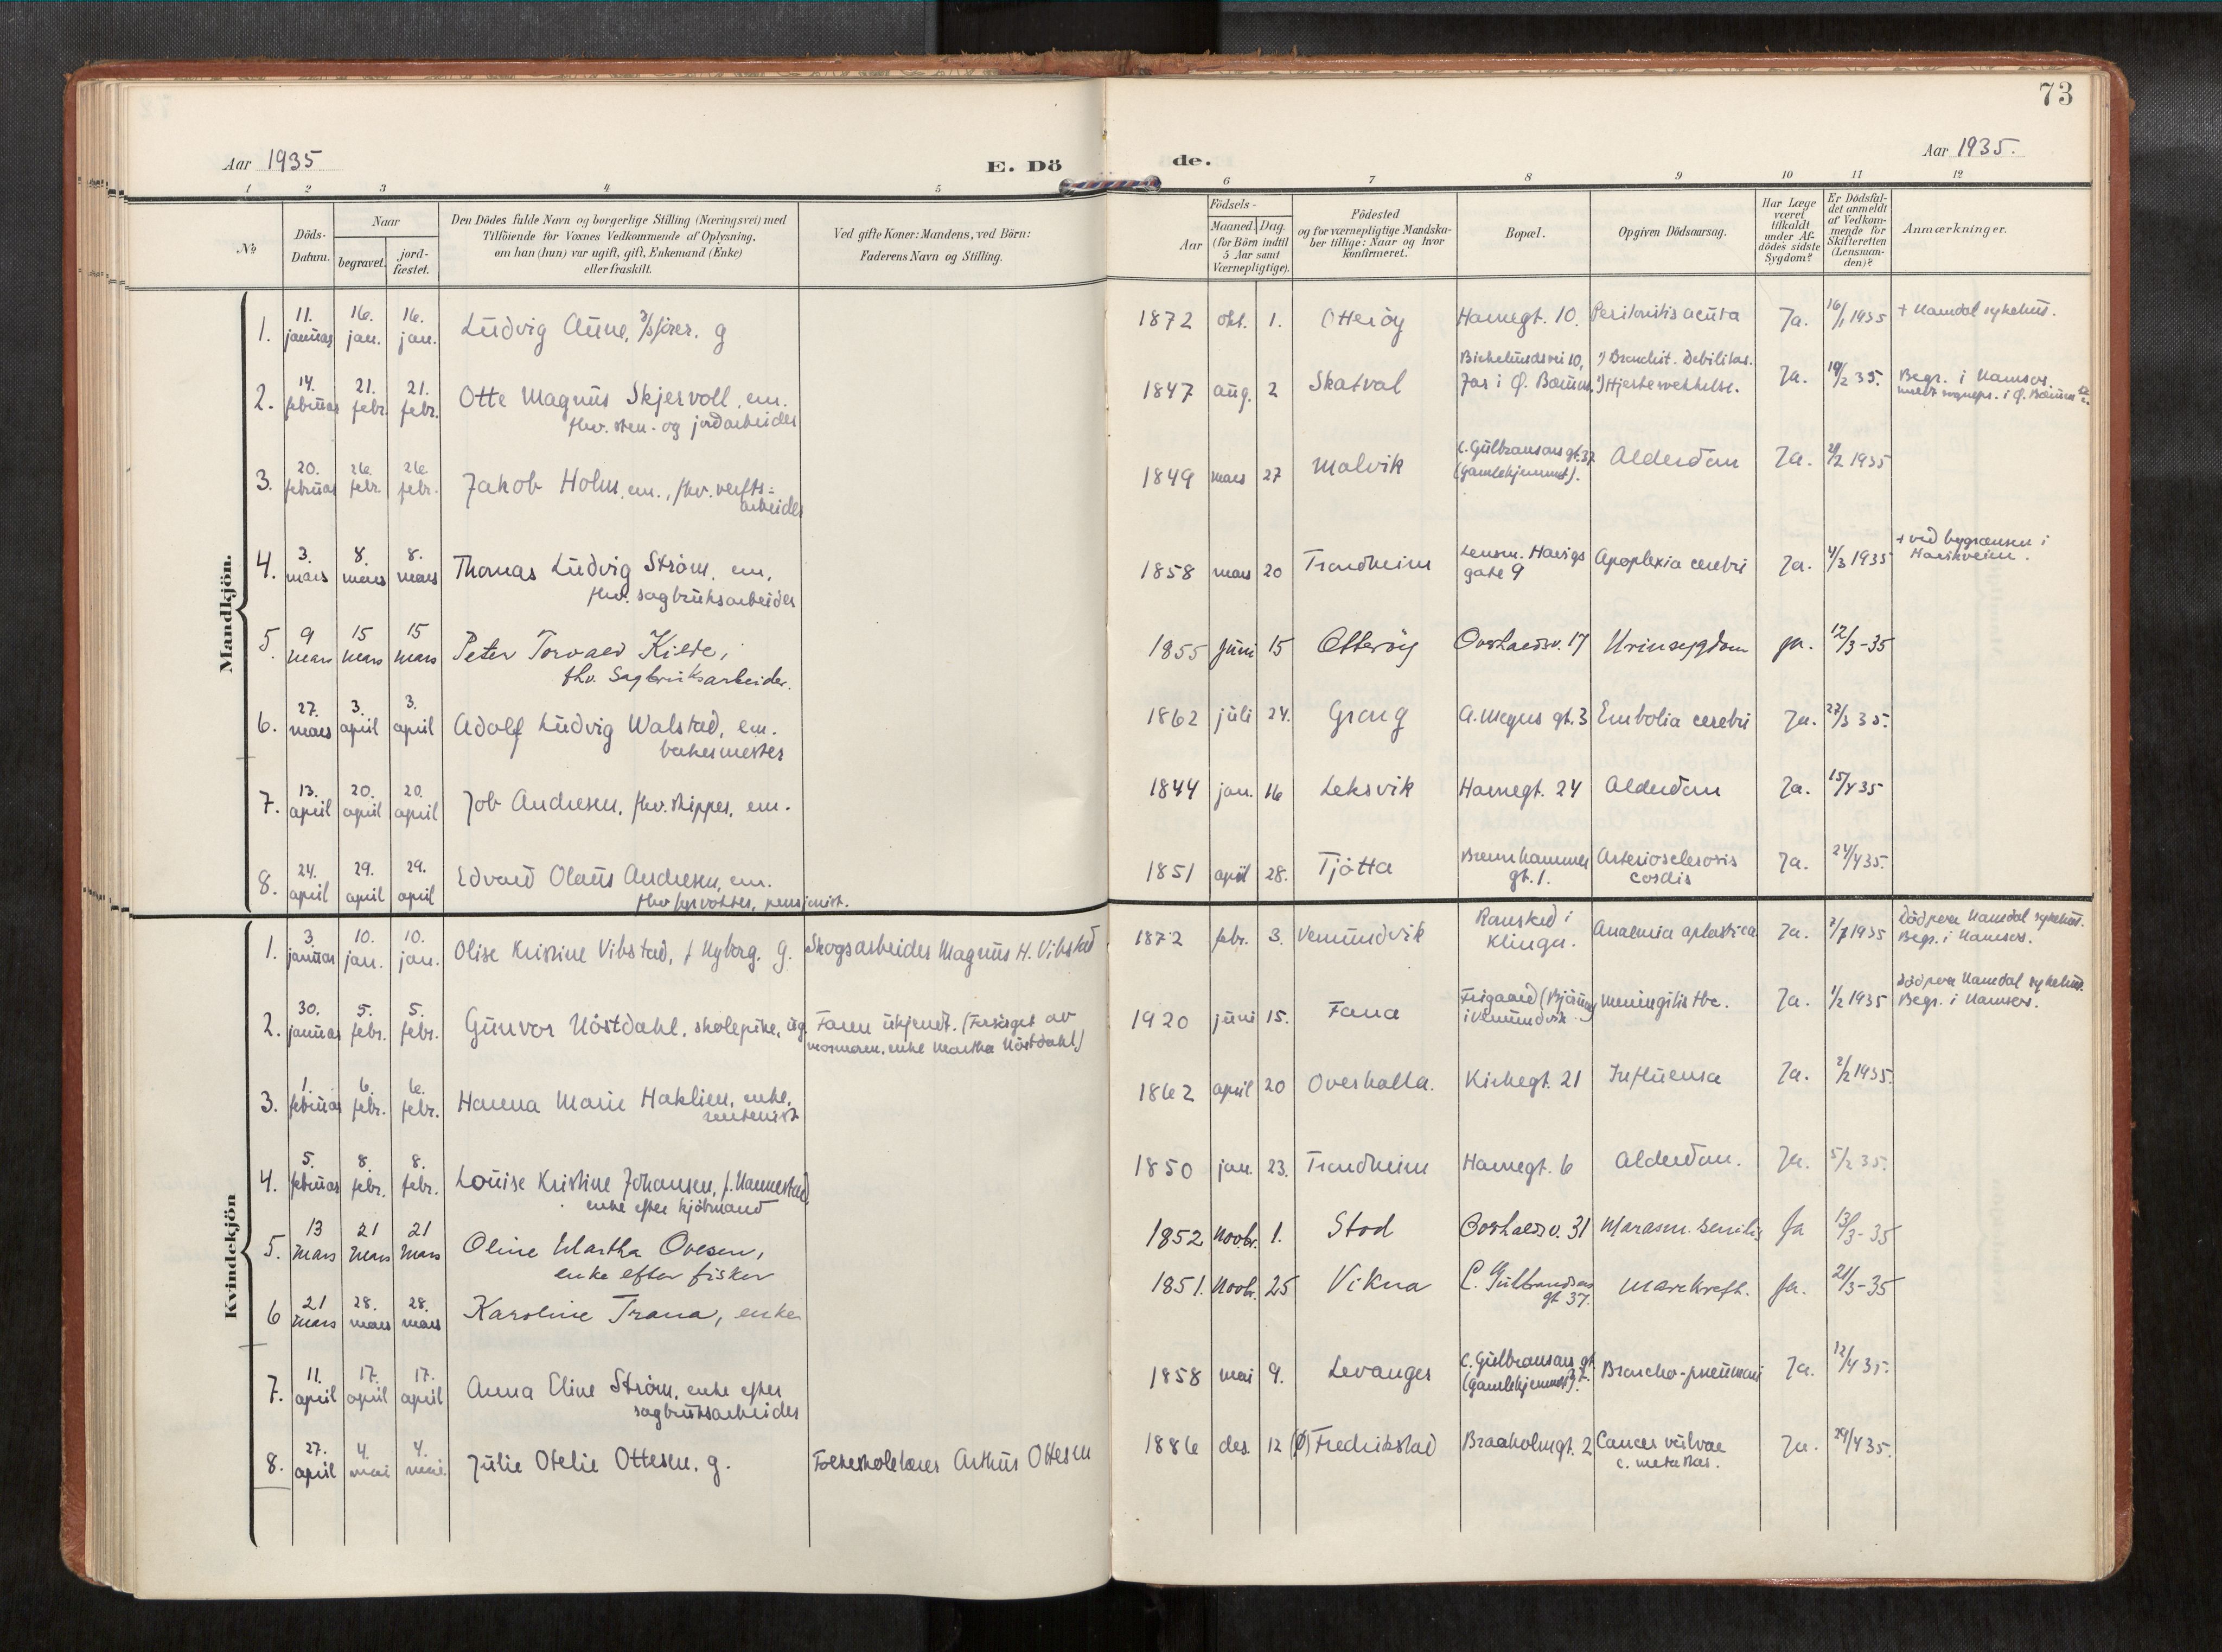 73
Aar 1935
E. Dö
de.
Aar 1935.
1 2 3 4 5 6 7 8 9 10 11 12
No
Döds-
Datum.
Naar
begravet.
jord-
fæstet.
Den Dödes fulde Navn og borgerlige Stilling (Næringsvei) med
Tilföiende for Voxnes Vedkommende af Oplysning,
om han (hun) var ugift, gift, Enkemand (Enke)
eller fraskilt.
Ved gifte Koner: Mandens, ved Börn:
Faderens Navn og Stilling.
Födsels-
Aar
Maaned. Dag.
(for Börn indtil
5 Aar samt
Værnepligtige).
Födested
og for værnepligtige Mandska-
ber tillige: Naar og hvor
konfirmeret.
Bopæl.
Opgiven Dödsaarsag.
Har Læge
været
tilkaldt
under Af-
dödes sidste
Sygdom?
Er Dödsfal-
det anmeldt
af Vedkom-
mende for
Skifteretten
(Lensman-
den)?
Anmærkninger.
Mandkjön.
1. 11. januar 16. jan. 16. jan. Ludvig Aune, g 1872 okt. 1. Otterøy Havnegt. 10. Peritonitis acuta Ja. 16/1 1935 + Namdal sykehus.
2. 14. februar 21. febr. 21. febr. Otte Magnus Skjervoll, em.
fhv. sten- og jordarbeider
1847 aug. 2 Skatval
1) Bronchit. Debilitas.
2) Hjertesvekkelse.
Ja. 35. Begr. i Namsos.
3. 20. februar 26. febr. 26. febr. Jakob Holm, em., fhv. verfts=
arbeider
1849 mars 27 Malvik C. Gulbransons gt. 37
(Gamlehjemmet).
Alderdom Ja. 1935
4. 3. mars 8. mars 8. mars Thomas Ludvig Strøm, em,
fhv. sagbruksarbeider
1858 mars 20 Trondheim Lensm. Havigs
gate 9
Apoplexia cerebri Ja. 4/3 1935 + ved bygrensen i
5. 9 mars 15 mars 15 mars Peter Torvald Kilde,
fhv. Sagbruksarbeider.
1855 juni 15 Otterøy Overhaldsv. 17 Urinsygdom ja. 12/3-35
6. 27. mars 3. april 3. april Adolf Ludvig Walstad, em.
bakermester
1862 juli 24. Grong gt. 3 Embolia cerebri Ja. 27/3 35.
7. 13. april 20. april 20. april Job Andresen, fhv. skipper, em.
1844 jan. 16 Leksvik Havnegt. 24 Alderdom Ja. 15/4 35
8. 24. april 29. april 29. april Edvard Olaus Andresen, em.
fhv. fyrvokter, pensjonist.
1851 april 28. Tjøtta
gt. 1.
Arteriosclerosis
cordis
Ja. 24/4 35.
Kvindekjön
1. 3 januar 10. jan. 10. jan. Olise Kristine Vibstad, f Nyborg. g. Skogsarbeider Magnus H. Vibstad
1872 febr. 3. Vemundvik i
Klinga.
Anaemia aplastica Ja. 1935 Död paa Namdal sykehus.
Begr. i Namsos.
2. 30. januar 5. febr. 5. febr. Gunvor Nöstdahl, skolepike, ug. Faren ukjendt. (Forsörget av
mormoren, enke Martha Nöstdahl)
1920 juni 15. Fana
i Vemundvik
meningitis tbc. Ja. 1/2 1935 Död paa Namdal sykehus.
Begr. i Namsos.
3. 1. februar 6. febr. 6. febr. Hanna Marie Haklien, enke,
rentenist
1862 april 20 Overhalla. Kirkegt. 21 Influensa Ja. 2/2 1935.
4. 5. februar 8. febr. 8. febr. Louise Kristine Johansen, f. Hannestad
enke efter kjöbmand
1850 jan. 23. Trondheim Havnegt. 6 Alderdom. Ja. 5/2 35.
5. 13 mars 21 mars 21 mars Oline Martha Ovesen,
enke efter fisker
1852 Novbr. 1. Stod Overhaldsv. 31 Marasm. senilis ja 13/3-35
6 21 mars 28. mars 28. mars Karoline Trana, enke
1851. Novbr. 25 Vikna C. Gulbransons
gt 37.
Marekreft. ja. 21/3-35
7. 11. april 17. april 17. april Anna Eline Strøm, enke efter
sagbruksarbeider
1858 mai 9. Levanger C. Gulbransons gt
37.
(Gamlehjemmet).
Broncho-pneumoni Ja. 12/4 35.
8. 27. april 4. mai 4. mai Julie Otelie Ottesen. g. Folkeskolelærer Arthur Ottesen
1886 des. 12 Fredrikstad Braaholmgt. 2 Cancer vulvae
c. metastas.
Ja. 29/4 35.